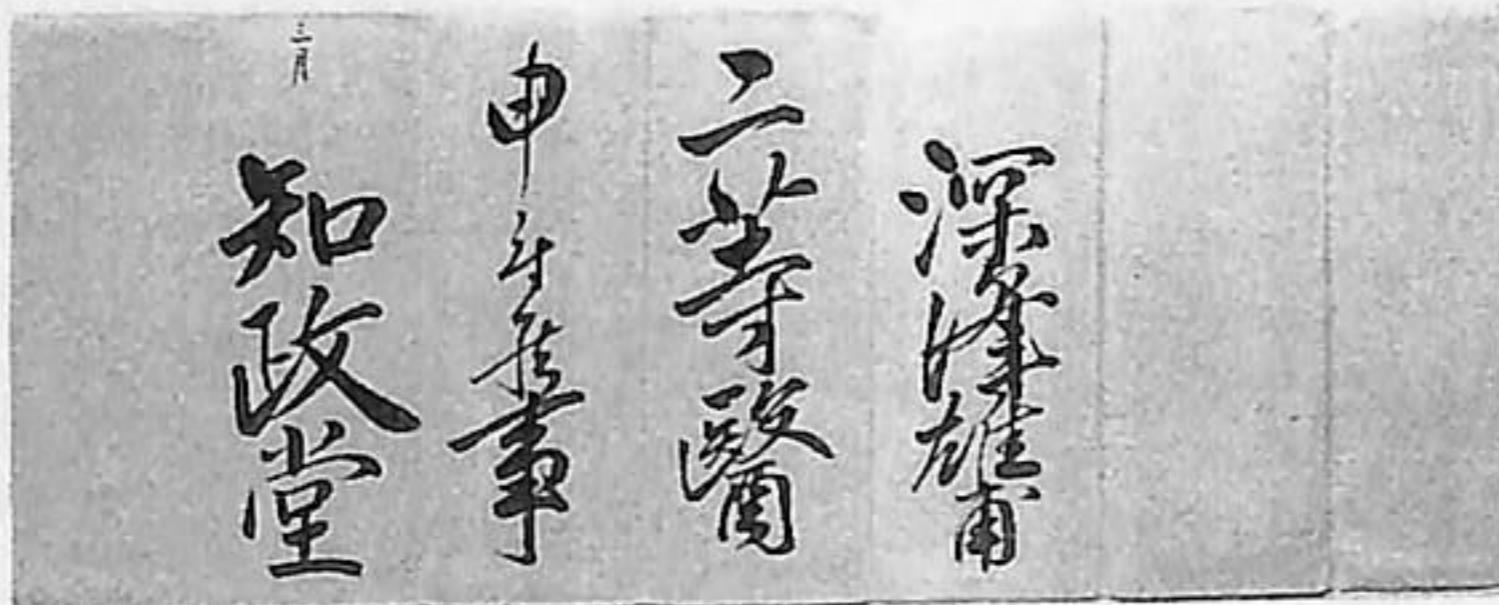 深澤雄甫
二等醫
申付候事
三月
知政堂